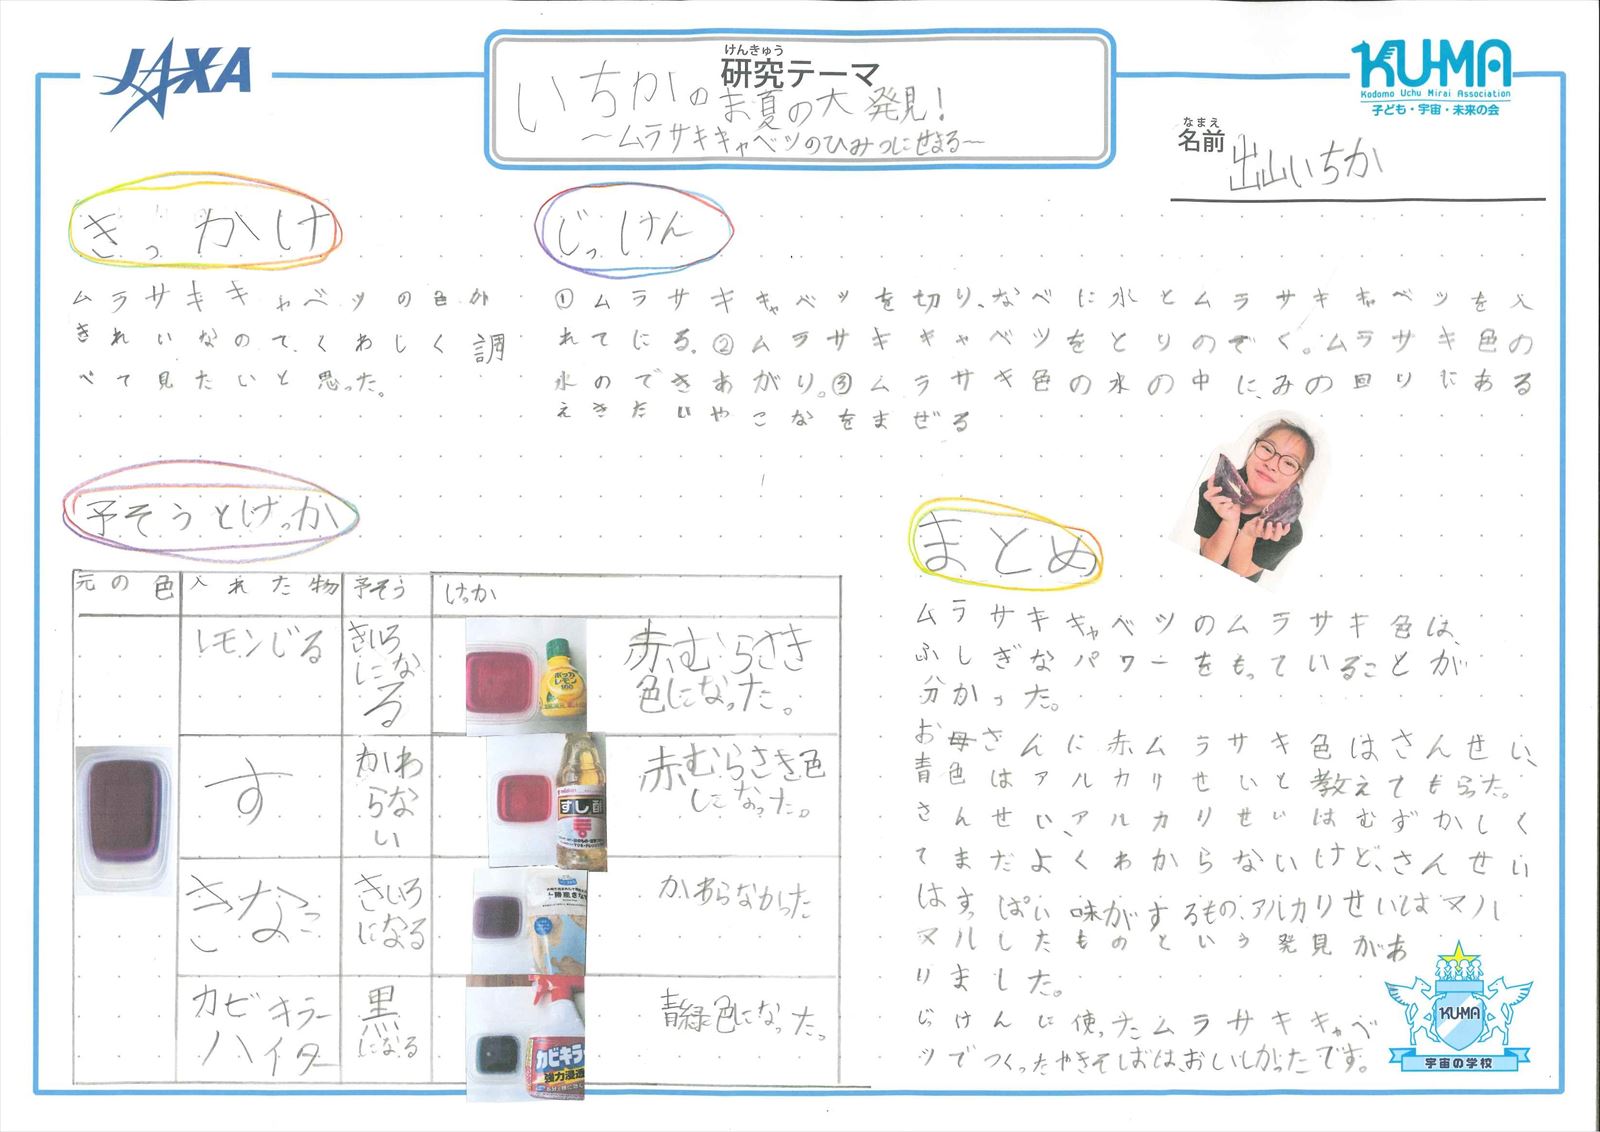 JAXA
けんきゅう
研究テーマ
いちかのま夏の大発見！
～ムラサキキャベツのひみつにせまる～
KU-MA
Kodomo Uchu Mirai Association
子ども・宇宙・未来の会
なまえ
名前
出山いちか
きっかけ
ムラサキキャベツの色が
きれいなので、くわしく調
べて見たいと思った。
じっけん
①ムラサキキャベツを切り、なべに水とムラサキキャベツを入
れてにる。②ムラサキキャベツをとりのぞく。ムラサキ色の
水のできあがり。③ムラサキ色の水の中に、みの回りにある
えきたいやこなをまぜる
予そうとけっか
元の色 入れた物 予そう けっか
レモンじる
きいろ
になる
ポッカ
レモン
100
赤むらさき
色になった。
す
かわ
らな
い
すし酢
赤むらさき色
になった。
きなこ
きいろ
になる
かわらなかった
カビキラー
ハイター
黒
になる
カビキラー
強力浸透
青緑色になった。
まとめ
ムラサキキャベツのムラサキ色は、
ふしぎなパワーをもっていることが
分かった。
お母さんに赤ムラサキ色はさんせい、
青色はアルカリせいと教えてもらった。
さんせい、アルカリせいはむずかしく
てまだよくわからないけど、さんせい
はすっぱい味がするもの、アルカリせいはヌル
ヌルしたものという発見があ
りました。
じっけんに使ったムラサキキャベ
ツでつくったやきそばは、おいしかったです。
KU-MA
宇宙の学校